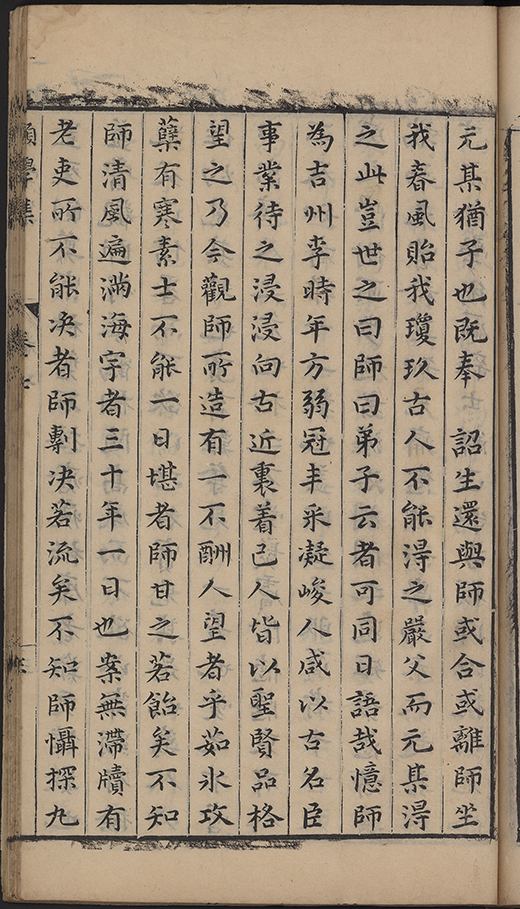 元某猶子也既奉　詔生還與師或合或離師坐
我春風貽我瓊玖古人不能淂之嚴父而元某淂
之此豈世之曰師曰弟子云者可同日語哉憶師
為吉州李時年方弱冠丰采凝峻人咸以古名臣
事業待之浸浸向古近裏着己人皆以聖賢品格
望之乃今觀師所造有一不酬人望者乎茹氷攻
蘖有寒素士不能一日堪者師甘之若飴矣不知
師清風遍滿海宇者三十年一日也案無滯牘有
老吏所不能决者師剸决若流矣不知師懾探九
學集
卷七